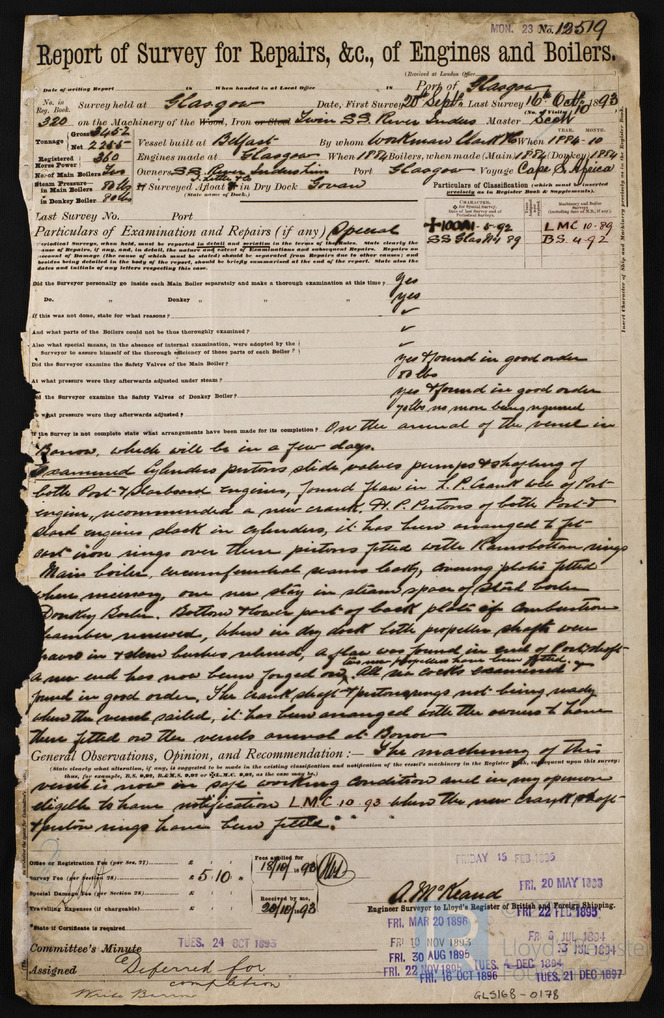 MON. 23 No. 12519
Report of Survey for Repairs, &c., of Engines and Boilers.
(Received at London Office
Date of writing Report 18 When handed in at Local Office 18 Port of Glasgow
No. in Reg. Book. 320 Survey held at Glasgow Date, First Survey 20th Sept Last Survey 16th Oct 1893
(No. of Visits 10)
on the Machinery of the Wood, Iron or Steel Twin S.S. River Indus Master Scott
Tonnage Gross 3452 Net 2255
Vessel built at Belfast By whom Workman Clark & Co When 1884-10
YEAR. MONTH.
Registered Horse Power 360 Engines made at Glasgow When 1884 Boilers, when made (Main) 1884 (Donkey) 1884
No. of Main Boilers Two Owners S.S. River Port Glasgow Voyage Cape S. Africa
Steam Pressure in Main Boilers 80 lbs
in Donkey Boiler 80 lbs
If Surveyed Afloat or in Dry Dock Govan
(State name of Dock.)
Particulars of Classification (which must be inserted precisely as in Register Book & Supplements).
Last Survey No. Port
✠100A1 - 5-92 LMC 10.89
SS Glas No 4 89 BS 4-92
Particulars of Examination and Repairs (if any) Special
Insert Character of Ship and Machinery precisely as in the Register Book
Did the Surveyor personally go inside each Main Boiler separately and make a thorough examination at this time? Yes
Do. " Donkey " " " " yes
If this was not done, state for what reasons? ✓
And what parts of the Boilers could not be thoroughly examined? ✓
Also what special means, in the absence of internal examination, were adopted by the
Surveyor to assure himself of the thorough efficiency of those parts of each Boiler? ✓
Did the Surveyor examine the Safety Valves of the Main Boiler? yes & found in good order
At what pressure were they afterwards adjusted under steam? 80 lbs
Did the Surveyor examine the Safety Valves of Donkey Boiler? yes & found in good order
what pressure were they afterwards adjusted? 70 lbs no more being required
If the Survey is not complete state what arrangements have been made for its completion? On the arrival of the vessel in
Barrow, which will be in a few days.
Examined Cylinders pistons slide valves pumps & shafting of
both Port & Starboard engines, found flaw in L.P. Crank web of Port
engine, recommended a new crank. H.P. Pistons of both Port &
Starb engines slack in cylinders, it has been arranged to fit
cast iron rings over these pistons fitted with Ramsbottom rings
Main boiler, circumferential seams leaky, covering plates fitted
where necessary, one new stay in steam space of Starb boiler
Donkey Boiler. Bottom & lower part of back plate of combustion
chamber renewed, When in dry dock both propeller shafts were
drawn in & stern bushes relined, a flaw was found in end of Port shaft
a new end has now been forged on, two new propellers have been fitted. All sea cocks examined &
found in good order. The crank shaft & piston rings not being ready
when the vessel sailed, it has been arranged with the owners to have
these fitted on the vessels arrival at Barrow
General Observations, Opinion, and Recommendation:— The machinery of this
(State clearly what alteration, if any, is suggested to be made in the existing classification and notification of the vessel's machinery in the Register Book, consequent upon this survey;
thus, for example, B.S. 9,92, B.& M.S. 9,92 or ✠L.M.C. 9,92, as the case may be.)
vessel is now in safe working condition and in my opinion
eligible to have notification LMC 10.93 when the new crank shaft
& piston rings have been fitted.
Office or Registration Fee (per Sec. 27) £ : :
Survey Fee (per Section 28) £ 5.10 :
Special Damage Fee (per Section 28) £ : :
Travelling Expenses (if chargeable) £ : :
Fees applied for 18/10/93
Received by me, 20/10/93
State if Certificate is required
A. McKeand
Engineer Surveyor to Lloyd's Register of British and Foreign Shipping.
Committee's Minute TUES. 24 OCT 1893
Assigned Deferred for
completion
FRIDAY 15 FEB 1895
FRI. 20 MAY 1898
FRI. 22 FEB 1895
FRI. MAR 20 1896
FRI. 10 NOV 1893
FRI. 30 AUG 1895
FRI. 22 NOV 1895
TUES. 4 DEC 1894
FRI. 16 OCT 1896
TUES. 21 DEC 1897
Lloyd's Register
GLS168-0178